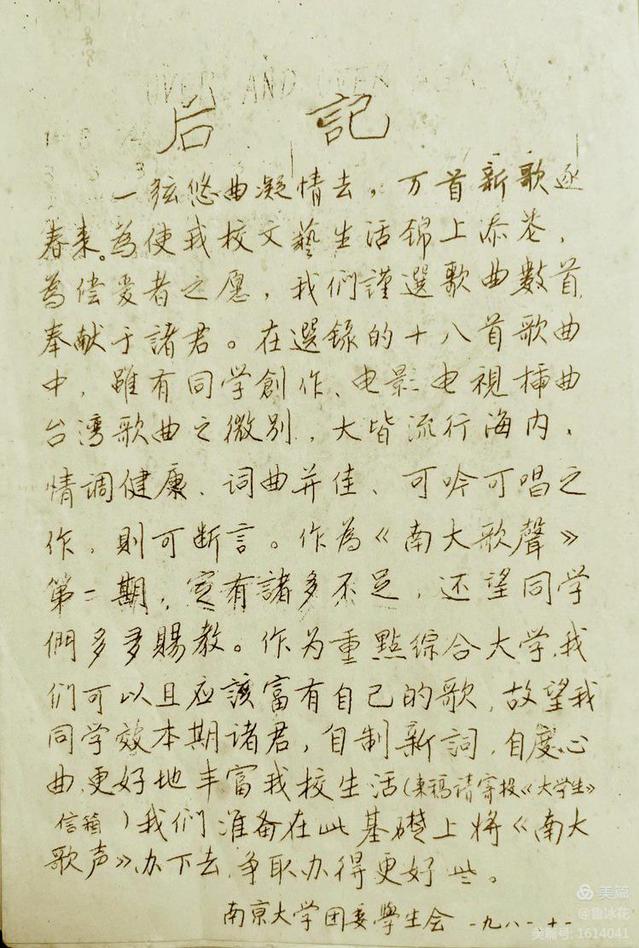 OVER AND OVER AGAIN
后 記
一弦悠曲凝情去，万首新歌逐
春来。為使我校文藝生活锦上添花，
為偿爱者之愿，我们謹選歌曲數首，
奉献于諸君。在選録的十八首歌曲
中，雖有同学創作、电影电視插曲
台湾歌曲之微别，大皆流行海内、
情调健康、词曲并佳、可吟可唱之
作，則可断言。作為《南大歌聲》
第二期，定有諸多不足，还望同学
們多多賜教。作为重點综合大学，我
们可以且应該富有自己的歌，故望我
同学效本期诸君，自制新詞，自度心
曲，更好地丰富我校生活（来稿请寄投《大学生》
信箱）我们准备在此基礎上将《南大
歌声》办下去，争取办得更好些。
南京大学团委學生会 一九八一·十一
美篇
@鲁冰花
美篇号: 1614041